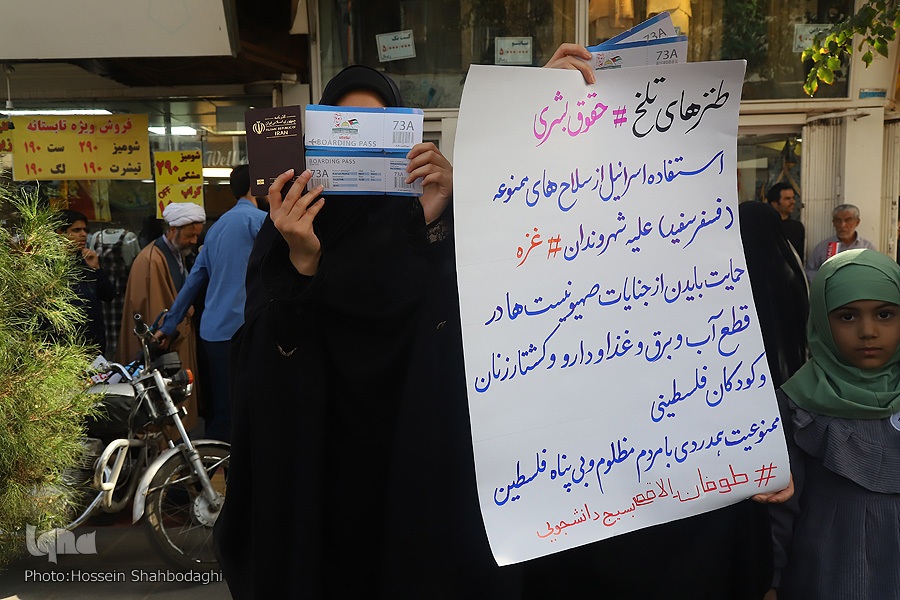 طنزهای تلخ # حقوق بشری
استفاده اسرائیل از سلاح های ممنوعه
(فسفر سفید) علیه شهروندان # غزه
حمایت بایدن از جنایات صهیونیست ها در
قطع آب و برق و غذا و دارو و کشتار زنان
و کودکان فلسطینی
ممنوعیت همدردی با مردم مظلوم و بی پناه فلسطین
# طوفان_الاقصی
بسیج دانشجویی
IRAN
73A
BOARDING PASS
BOARDING PASS
73A
73A
73A
فروش ویژه تابستانه
شومیز ۲۹۰ ست ۱۹۰
تیشرت ۱۹۰ لگ ۱۹۰
شومیز
مشکی
۲۹۰
iqna
Photo:Hossein Shahbodaghi